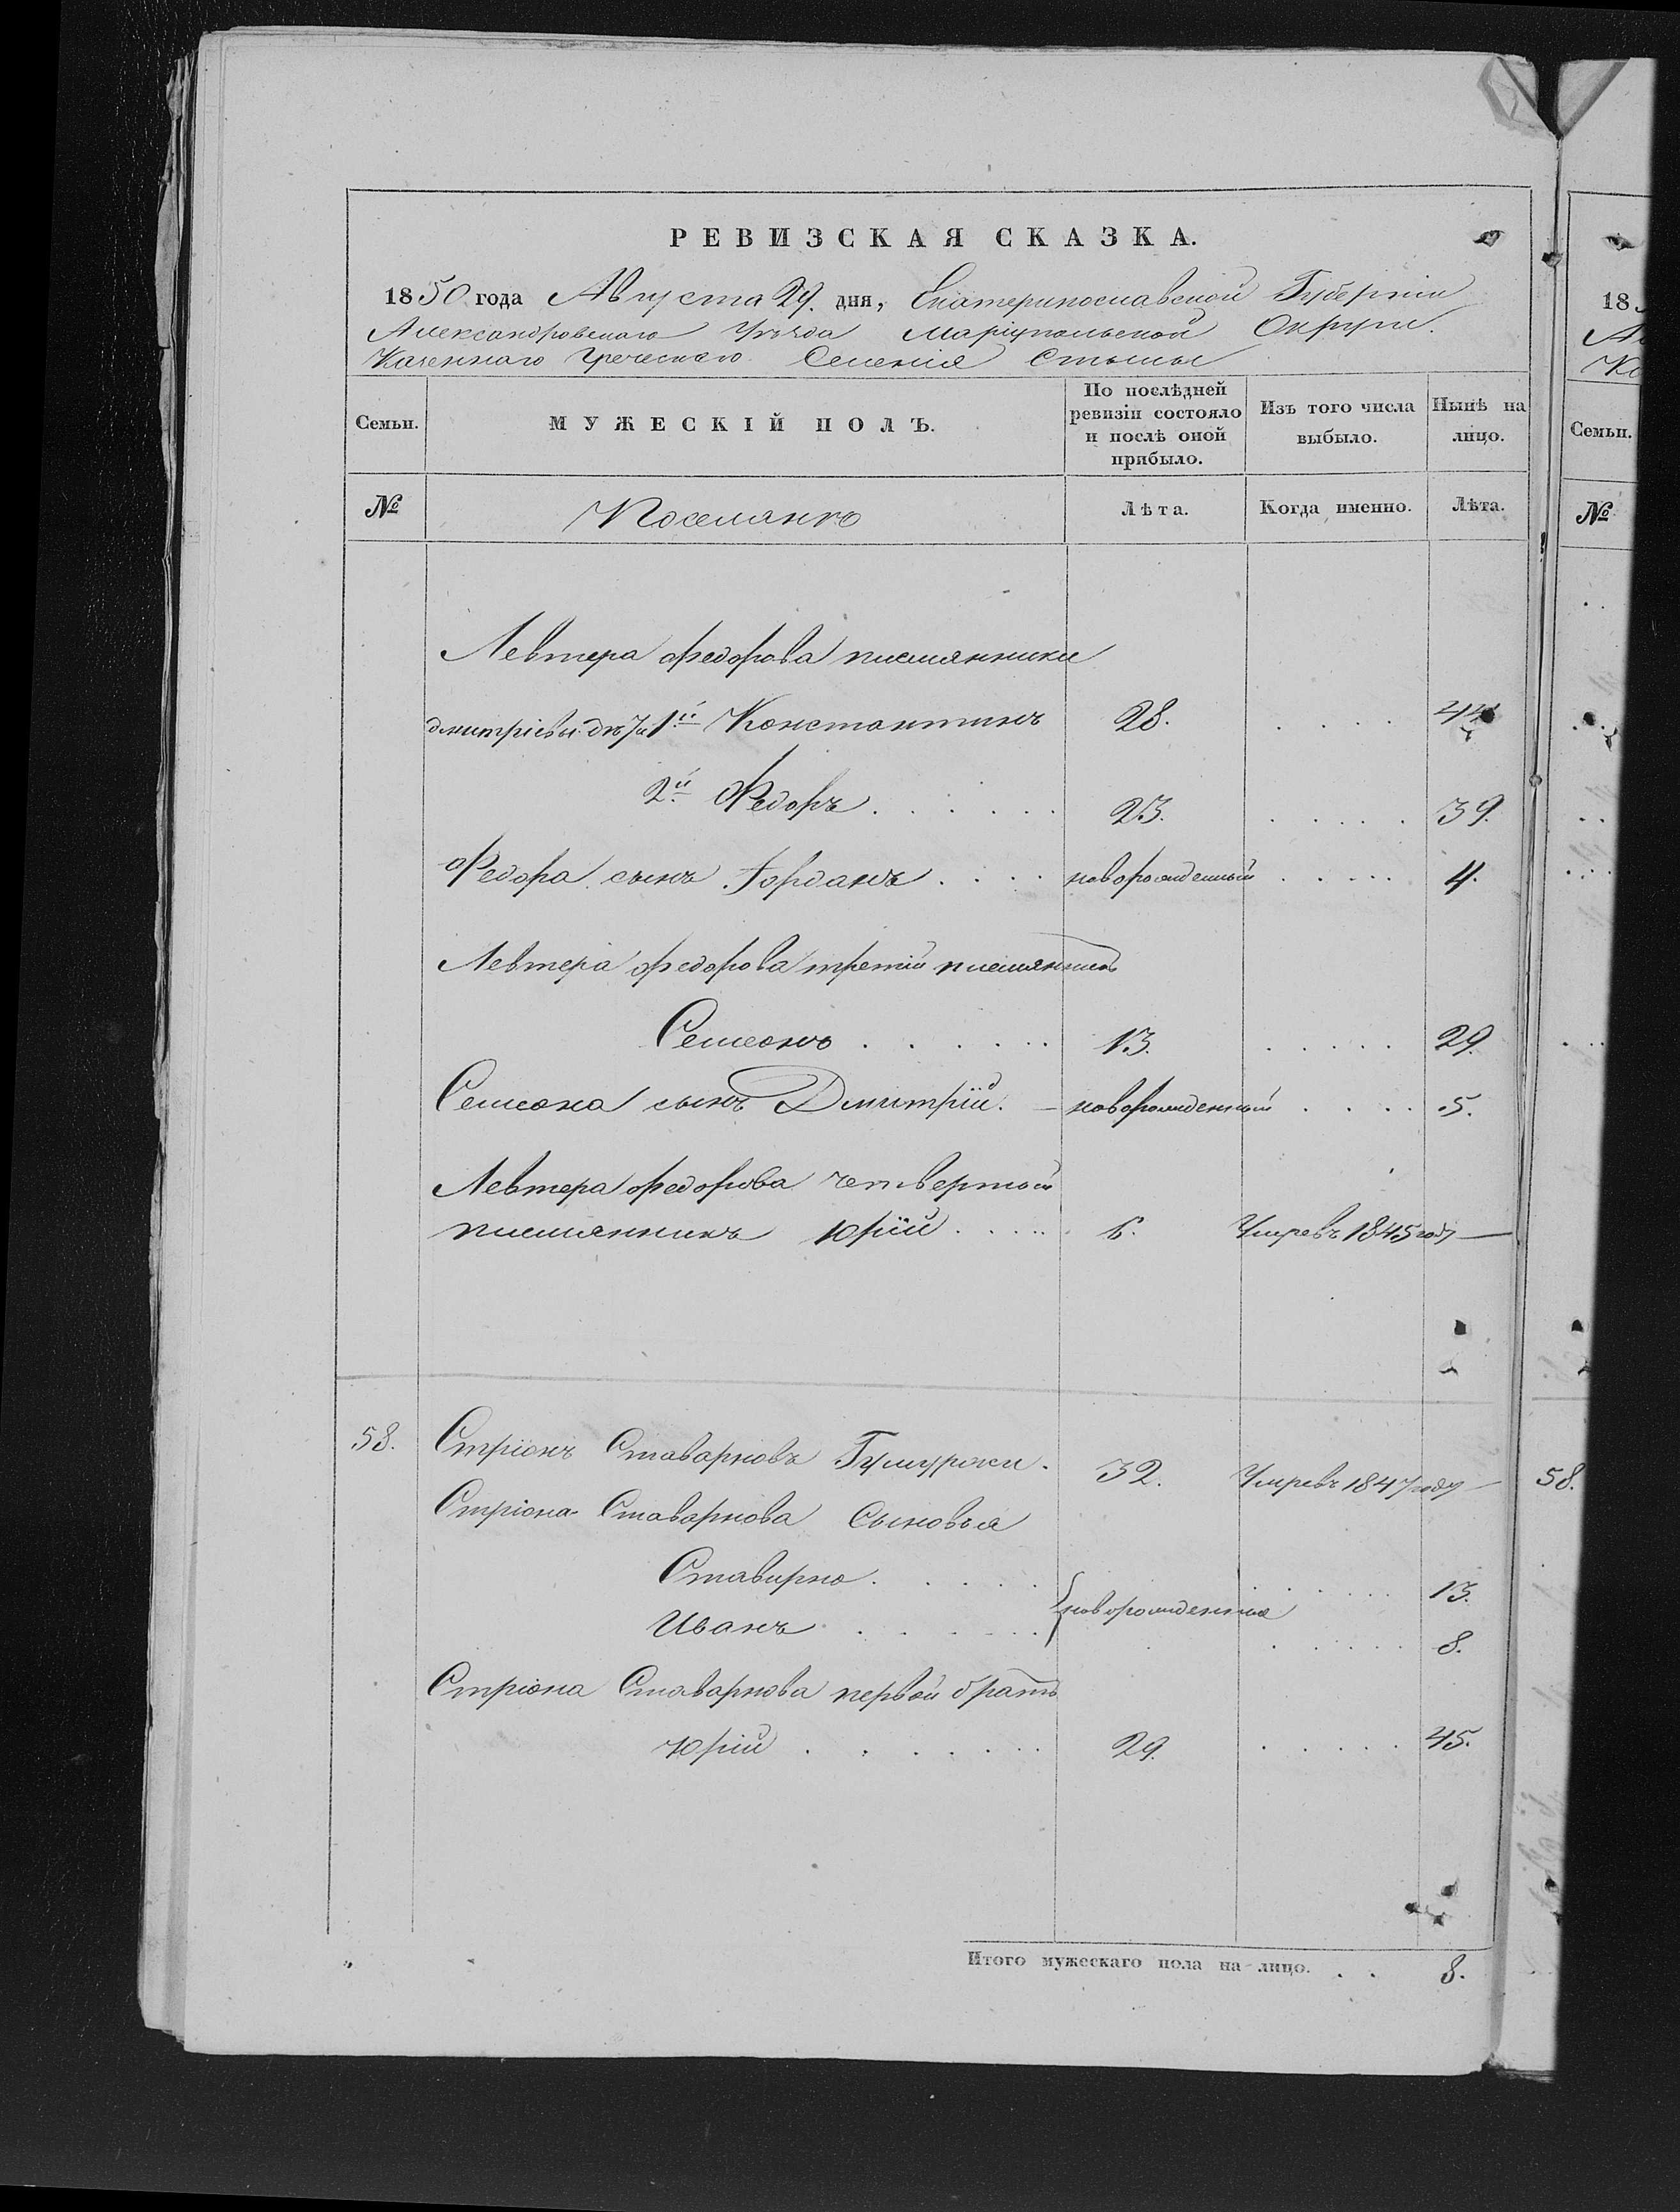 РЕВИЗСКАЯ СКАЗКА.
1850 года Августа 29. дня, Екатеринославской Губерніи
Александровскаго Уѣзда Маріупольской Округи.
Казеннаго Греческаго Селенія Стылы
Семьи.
МУЖЕСКІЙ ПОЛЪ.
По послѣдней ревизіи состояло и послѣ оной прибыло.
Изъ того числа выбыло.
Нынѣ на лицо.
№
Поселянъ
Лѣта.
Когда именно.
Лѣта.
Левтера Федорова племянники
дмитріевы дѣти 1й Константинъ 28. . . . . 44
2й Федоръ . . . . . 23. . . . . . 39.
Федора сынъ Іорданъ . . . . новорожденный . . . . . 4.
Левтера Федорова третій племянникъ
Семеонъ . . . . . 13. . . . . . 29.
Семеона сынъ Дмитрій. – новорожденный . . . . 5.
Левтера Федорова четвертой
племянникъ Юрій . . . . . 6. Умре въ 1845 году —
58. Стріонъ Ставарновъ 32. Умре въ 1847 году —
Стріона Ставарнова Сыновья
Ставирно . . . . . 13.
{новорожденные
Иванъ . . . . . . . . . . 8.
Стріона Ставарнова первой братъ
Юрій . . . . . . . 29. . . . . . 45.
Итого мужескаго пола на-лицо. . . 8.
18
Семьи.
№
58.